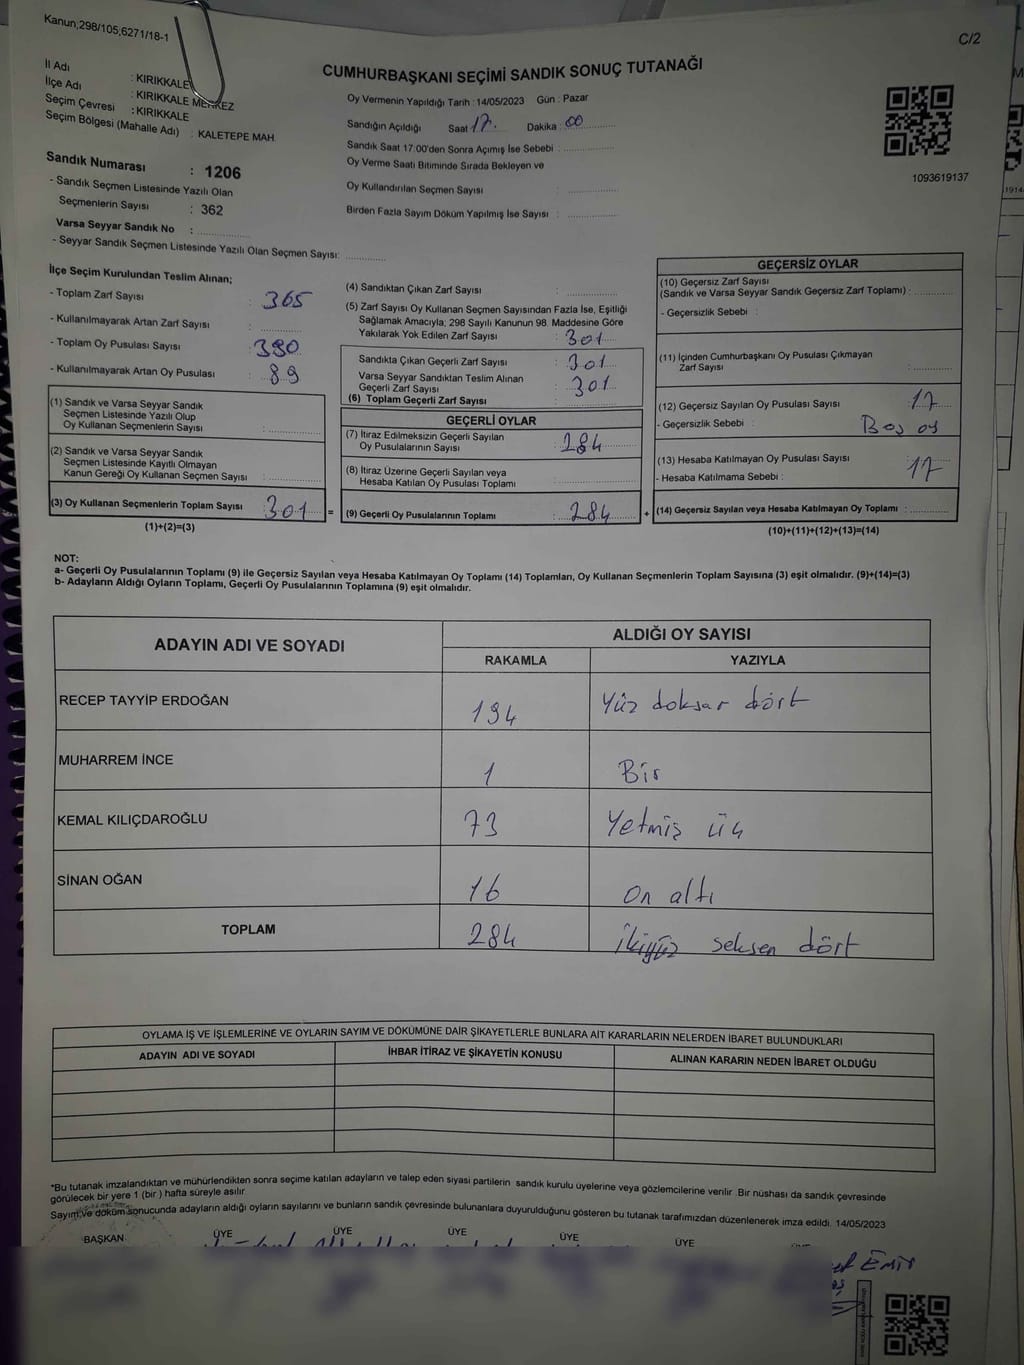 Kanun;298/105,6271/18-1
C/2
CUMHURBAŞKANI SEÇİMİ SANDIK SONUÇ TUTANAĞI
İl Adı : KIRIKKALE
İlçe Adı : KIRIKKALE MERKEZ
Seçim Çevresi : KIRIKKALE
Seçim Bölgesi (Mahalle Adı) : KALETEPE MAH.
Sandık Numarası : 1206
- Sandık Seçmen Listesinde Yazılı Olan
Seçmenlerin Sayısı : 362
Varsa Seyyar Sandık No :
- Seyyar Sandık Seçmen Listesinde Yazılı Olan Seçmen Sayısı:
Oy Vermenin Yapıldığı Tarih : 14/05/2023 Gün : Pazar
Sandığın Açıldığı Saat 17. Dakika 00
Sandık Saat 17:00'den Sonra Açımış İse Sebebi :
Oy Verme Saati Bitiminde Sırada Bekleyen ve
Oy Kullandırılan Seçmen Sayısı :
Birden Fazla Sayım Döküm Yapılmış İse Sayısı :
1093619137
İlçe Seçim Kurulundan Teslim Alınan;
- Toplam Zarf Sayısı : 365
- Kullanılmayarak Artan Zarf Sayısı :
- Toplam Oy Pusulası Sayısı : 390
- Kullanılmayarak Artan Oy Pusulası : 89
(1) Sandık ve Varsa Seyyar Sandık
Seçmen Listesinde Yazılı Olup
Oy Kullanan Seçmenlerin Sayısı :
(2) Sandık ve Varsa Seyyar Sandık
Seçmen Listesinde Kayıtlı Olmayan
Kanun Gereği Oy Kullanan Seçmen Sayısı :
(3) Oy Kullanan Seçmenlerin Toplam Sayısı : 301 =
(1)+(2)=(3)
(4) Sandıktan Çıkan Zarf Sayısı :
(5) Zarf Sayısı Oy Kullanan Seçmen Sayısından Fazla İse, Eşitliği
Sağlamak Amacıyla; 298 Sayılı Kanunun 98. Maddesine Göre
Yakılarak Yok Edilen Zarf Sayısı : 301
Sandıkta Çıkan Geçerli Zarf Sayısı : 301
Varsa Seyyar Sandıktan Teslim Alınan
Geçerli Zarf Sayısı : 301
(6) Toplam Geçerli Zarf Sayısı :
GEÇERLİ OYLAR
(7) İtiraz Edilmeksizin Geçerli Sayılan
Oy Pusulalarının Sayısı : 284
(8) İtiraz Üzerine Geçerli Sayılan veya
Hesaba Katılan Oy Pusulası Toplamı :
(9) Geçerli Oy Pusulalarının Toplamı : 284 +
GEÇERSİZ OYLAR
(10) Geçersiz Zarf Sayısı
(Sandık ve Varsa Seyyar Sandık Geçersiz Zarf Toplamı) :
- Geçersizlik Sebebi :
(11) İçinden Cumhurbaşkanı Oy Pusulası Çıkmayan
Zarf Sayısı :
(12) Geçersiz Sayılan Oy Pusulası Sayısı : 17
- Geçersizlik Sebebi : Boş oy
(13) Hesaba Katılmayan Oy Pusulası Sayısı : 17
- Hesaba Katılmama Sebebi :
(14) Geçersiz Sayılan veya Hesaba Katılmayan Oy Toplamı :
(10)+(11)+(12)+(13)=(14)
NOT:
a- Geçerli Oy Pusulalarının Toplamı (9) ile Geçersiz Sayılan veya Hesaba Katılmayan Oy Toplamı (14) Toplamları, Oy Kullanan Seçmenlerin Toplam Sayısına (3) eşit olmalıdır. (9)+(14)=(3)
b- Adayların Aldığı Oyların Toplamı, Geçerli Oy Pusulalarının Toplamına (9) eşit olmalıdır.
ADAYIN ADI VE SOYADI ALDIĞI OY SAYISI
RAKAMLA YAZIYLA
RECEP TAYYİP ERDOĞAN 194 Yüz doksar dört
MUHARREM İNCE 1 Bir
KEMAL KILIÇDAROĞLU 73 Yetmiş üç
SİNAN OĞAN 16 On altı
TOPLAM 284 İkiyüz seksen dört
OYLAMA İŞ VE İŞLEMLERİNE VE OYLARIN SAYIM VE DÖKÜMÜNE DAİR ŞİKAYETLERLE BUNLARA AİT KARARLARIN NELERDEN İBARET BULUNDUKLARI
ADAYIN ADI VE SOYADI İHBAR İTİRAZ VE ŞİKAYETİN KONUSU ALINAN KARARIN NEDEN İBARET OLDUĞU
*Bu tutanak imzalandıktan ve mühürlendikten sonra seçime katılan adayların ve talep eden siyasi partilerin sandık kurulu üyelerine veya gözlemcilerine verilir .Bir nüshası da sandık çevresinde
görülecek bir yere 1 (bir ) hafta süreyle asılır
Sayım ve döküm sonucunda adayların aldığı oyların sayılarını ve bunların sandık çevresinde bulunanlara duyurulduğunu gösteren bu tutanak tarafımızdan düzenlenerek imza edildi. 14/05/2023
BAŞKAN ÜYE ÜYE ÜYE ÜYE ÜYE